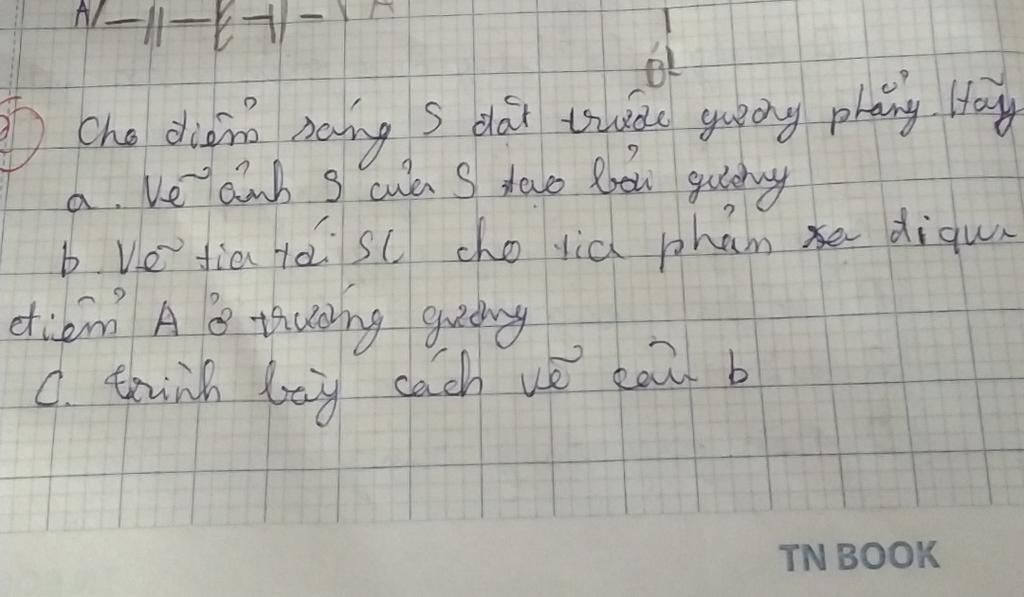 A
A
O
Cho điểm sáng S đặt trước gương phẳng. Hãy
a. Vẽ ảnh S của S tạo bởi gương
b. Vẽ tia tới SI cho tia phản xạ đi qua
điểm A ở trướng gương
C. trình bày cách vẽ câu b
TN BOOK